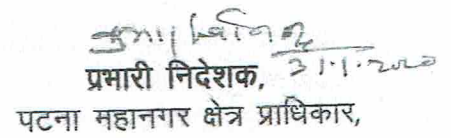 31.1.2020
प्रभारी निदेशक,
पटना महानगर क्षेत्र प्राधिकार,